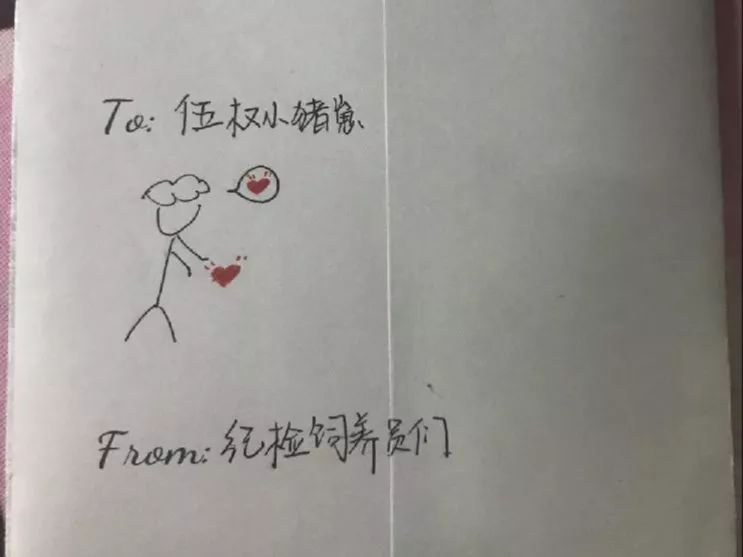 To: 伍权小猪崽
From: 纪检饲养员们